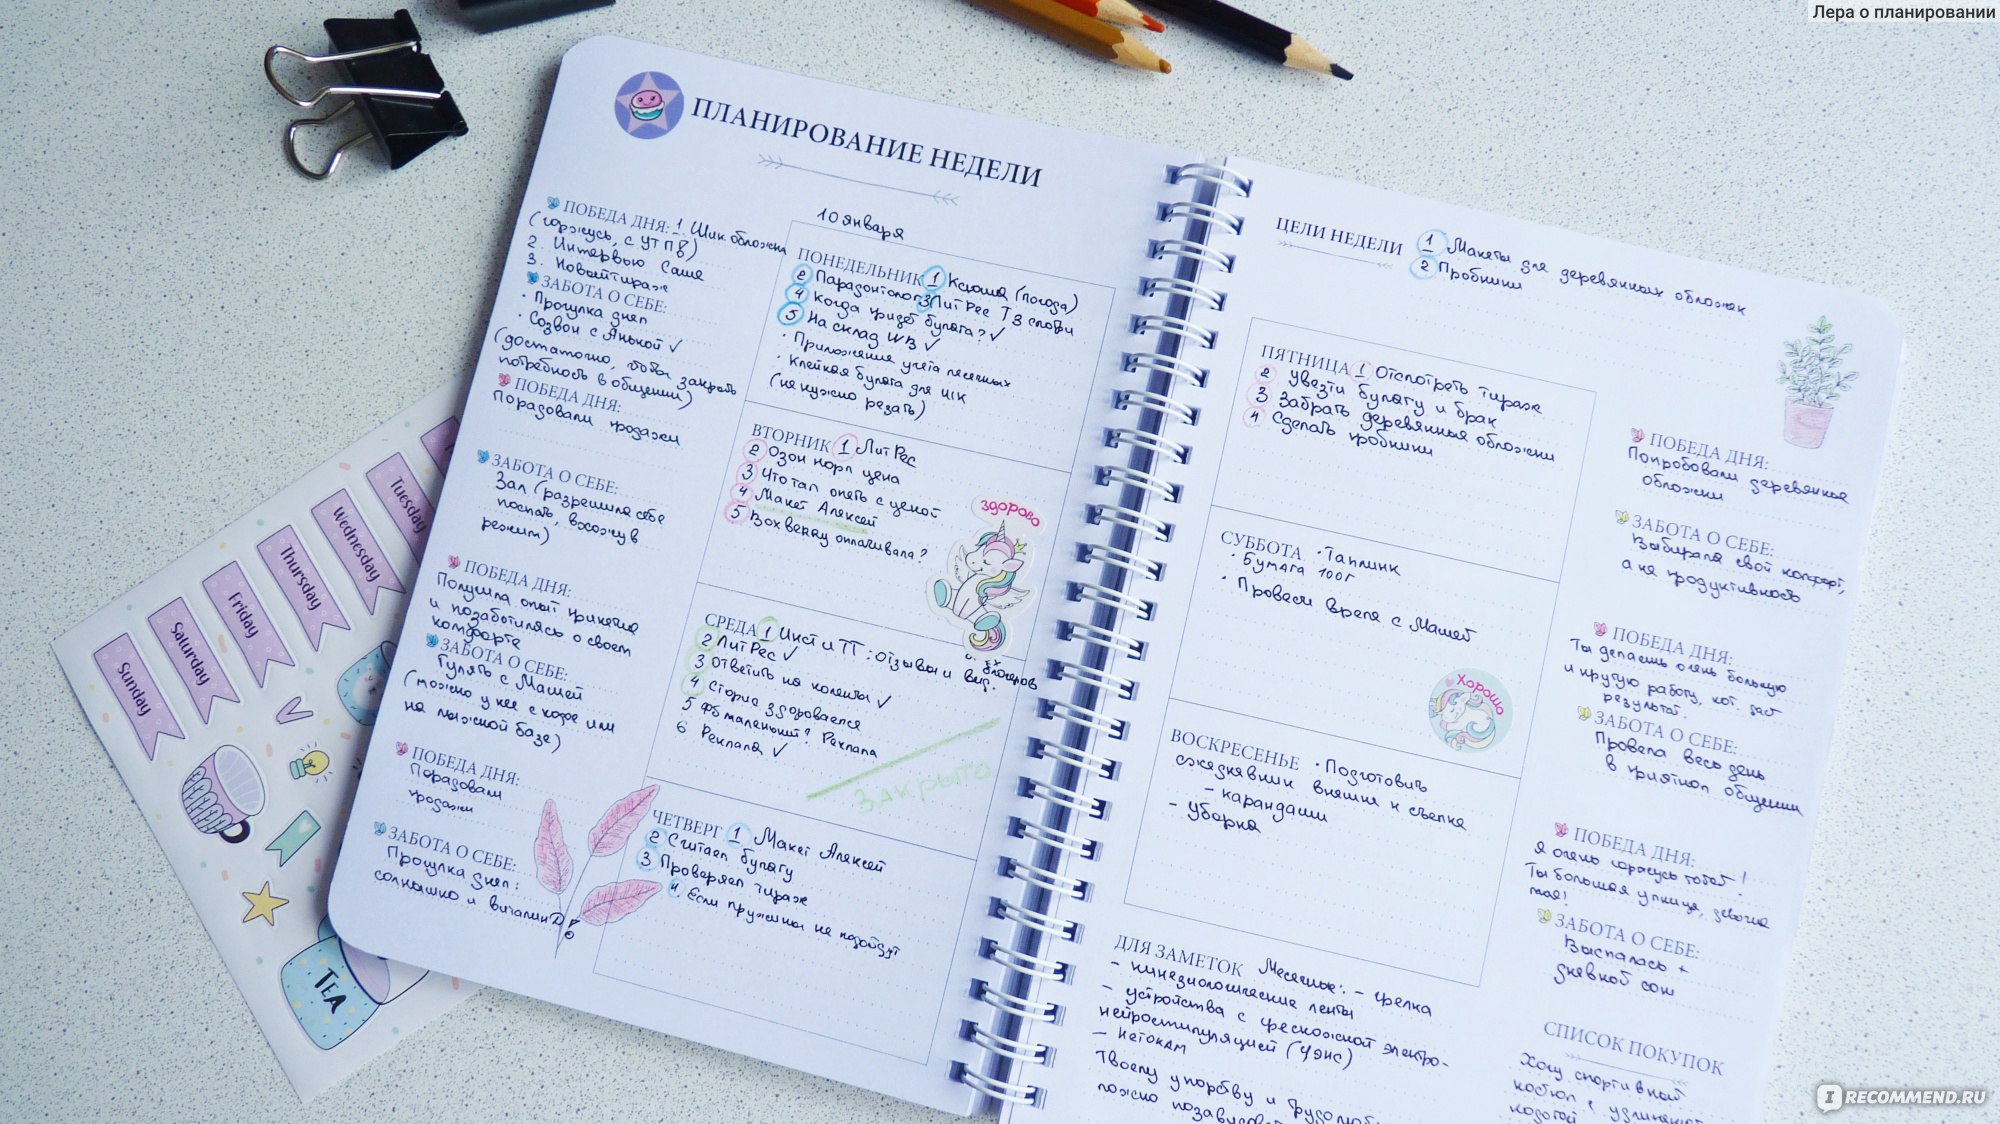 Лера о планировании
ПЛАНИРОВАНИЕ НЕДЕЛИ
10 января
ПОБЕДА ДНЯ: 1. Шик обложка
(горжусь, с УТПВ)
2. Интервью Саше
3. Новый тираж
ЗАБОТА О СЕБЕ:
· Прогулка днём
· Созвон с Анькой ✓
(достаточно, чтобы закрыть
потребность в общении)
ПОБЕДА ДНЯ:
Порадовали продажи
ЗАБОТА О СЕБЕ:
Зал (разрешила себе
поспать, вхожу в
режим)
ПОБЕДА ДНЯ:
Получила опыт
и позаботилась о своём
комфорте
ЗАБОТА О СЕБЕ:
Гулять с Машей
(можно у нее с кофе или
на лыжной базе)
ПОБЕДА ДНЯ:
Порадовали
продажи
ЗАБОТА О СЕБЕ:
Прогулка днём:
солнышко и витамин D
ПОНЕДЕЛЬНИК 1 Ксюша (погода)
2 Парадонтолог 3 ЛитРес ТЗ
4 Когда придёт бумага? ✓
5 На склад WB ✓
· Приложение учёта месячных
· Клейкая бумага для
(не нужно резать)
ВТОРНИК 1 ЛитРес
2 Озон норм цена
3 Что там опять с ценой
4 Макет Алексей
5 Boxberry оплачивала?
здорово
СРЕДА 1 Инст и ТТ: отзывы и вид.
блогеров
2 ЛитРес ✓
3 Ответить на коменты ✓
4 Сторис здоровается
5 ФБ маленький? Реклама
6 Реклама ✓
Закрыто
ЧЕТВЕРГ 1 Макет Алексей
2 Считаем бумагу
3 Проверяем тираж
4. Если пружины не подойдут
ЦЕЛИ НЕДЕЛИ 1 Макеты для деревянных обложек
2 Пробники
ПЯТНИЦА 1 Отсмотреть тираж
2 Увезти бумагу и брак
3 Забрать деревянные обложки
4 Сделать пробники
СУББОТА · Таплинк
· Бумага 100г
· Провели время с Машей
Хорошо
ВОСКРЕСЕНЬЕ · Подготовить
ежедневник внешне к съемке
- карандаши
- Уборка
ДЛЯ ЗАМЕТОК Месячные: - грелка
- кинезиологические ленты
- устройства с чрескожной электро-
нейростимуляцией (ЧЭНС)
- Кетонам
Твоему упорству и трудолюб
можно позавидовать
ПОБЕДА ДНЯ:
Попробовали деревянные
обложки
ЗАБОТА О СЕБЕ:
Выбирала свой комфорт,
а не продуктивность
ПОБЕДА ДНЯ:
Ты делаешь очень большую
и крутую работу, кот. даст
результат.
ЗАБОТА О СЕБЕ:
Провела весь день
в приятном общении
ПОБЕДА ДНЯ:
Я очень горжусь тобой!
Ты большая умница, девочка
моя!
ЗАБОТА О СЕБЕ:
Выспалась +
дневной сон
СПИСОК ПОКУПОК
Хочу спортивный
костюм с удлинённой
Tuesday
Wednesday
Thursday
Friday
Saturday
Sunday
TEA
IRECOMMEND.RU